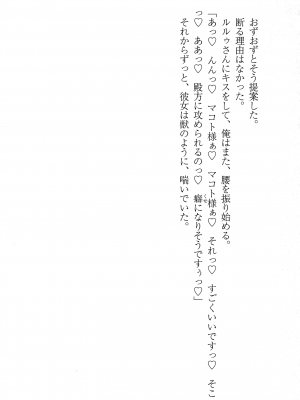 おずおずとそう提案した。
断る理由はなかった。
ルルゥさんにキスをして、俺はまた、腰を振り始める。
「あっ♡　んんっ♡　マコト様ぁ♡　マコト様ぁ♡　それっ♡　すごくいいですっ♡　そこ
っ♡　ああっ♡　殿方に攻められるのっ♡　癖になりそうですぅっ♡」
それからずっと、彼女は獣のように、喘いでいた。